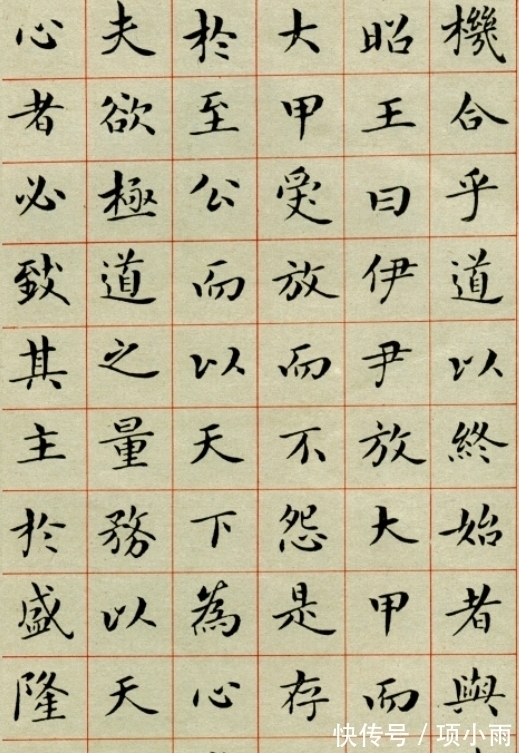 機合乎道以終始者與
昭王曰伊尹放大甲而
大甲受放而不怨是存
於至公而以天下為心
夫欲極道之量務以天
心者必致其主於盛隆
快传号/项小雨